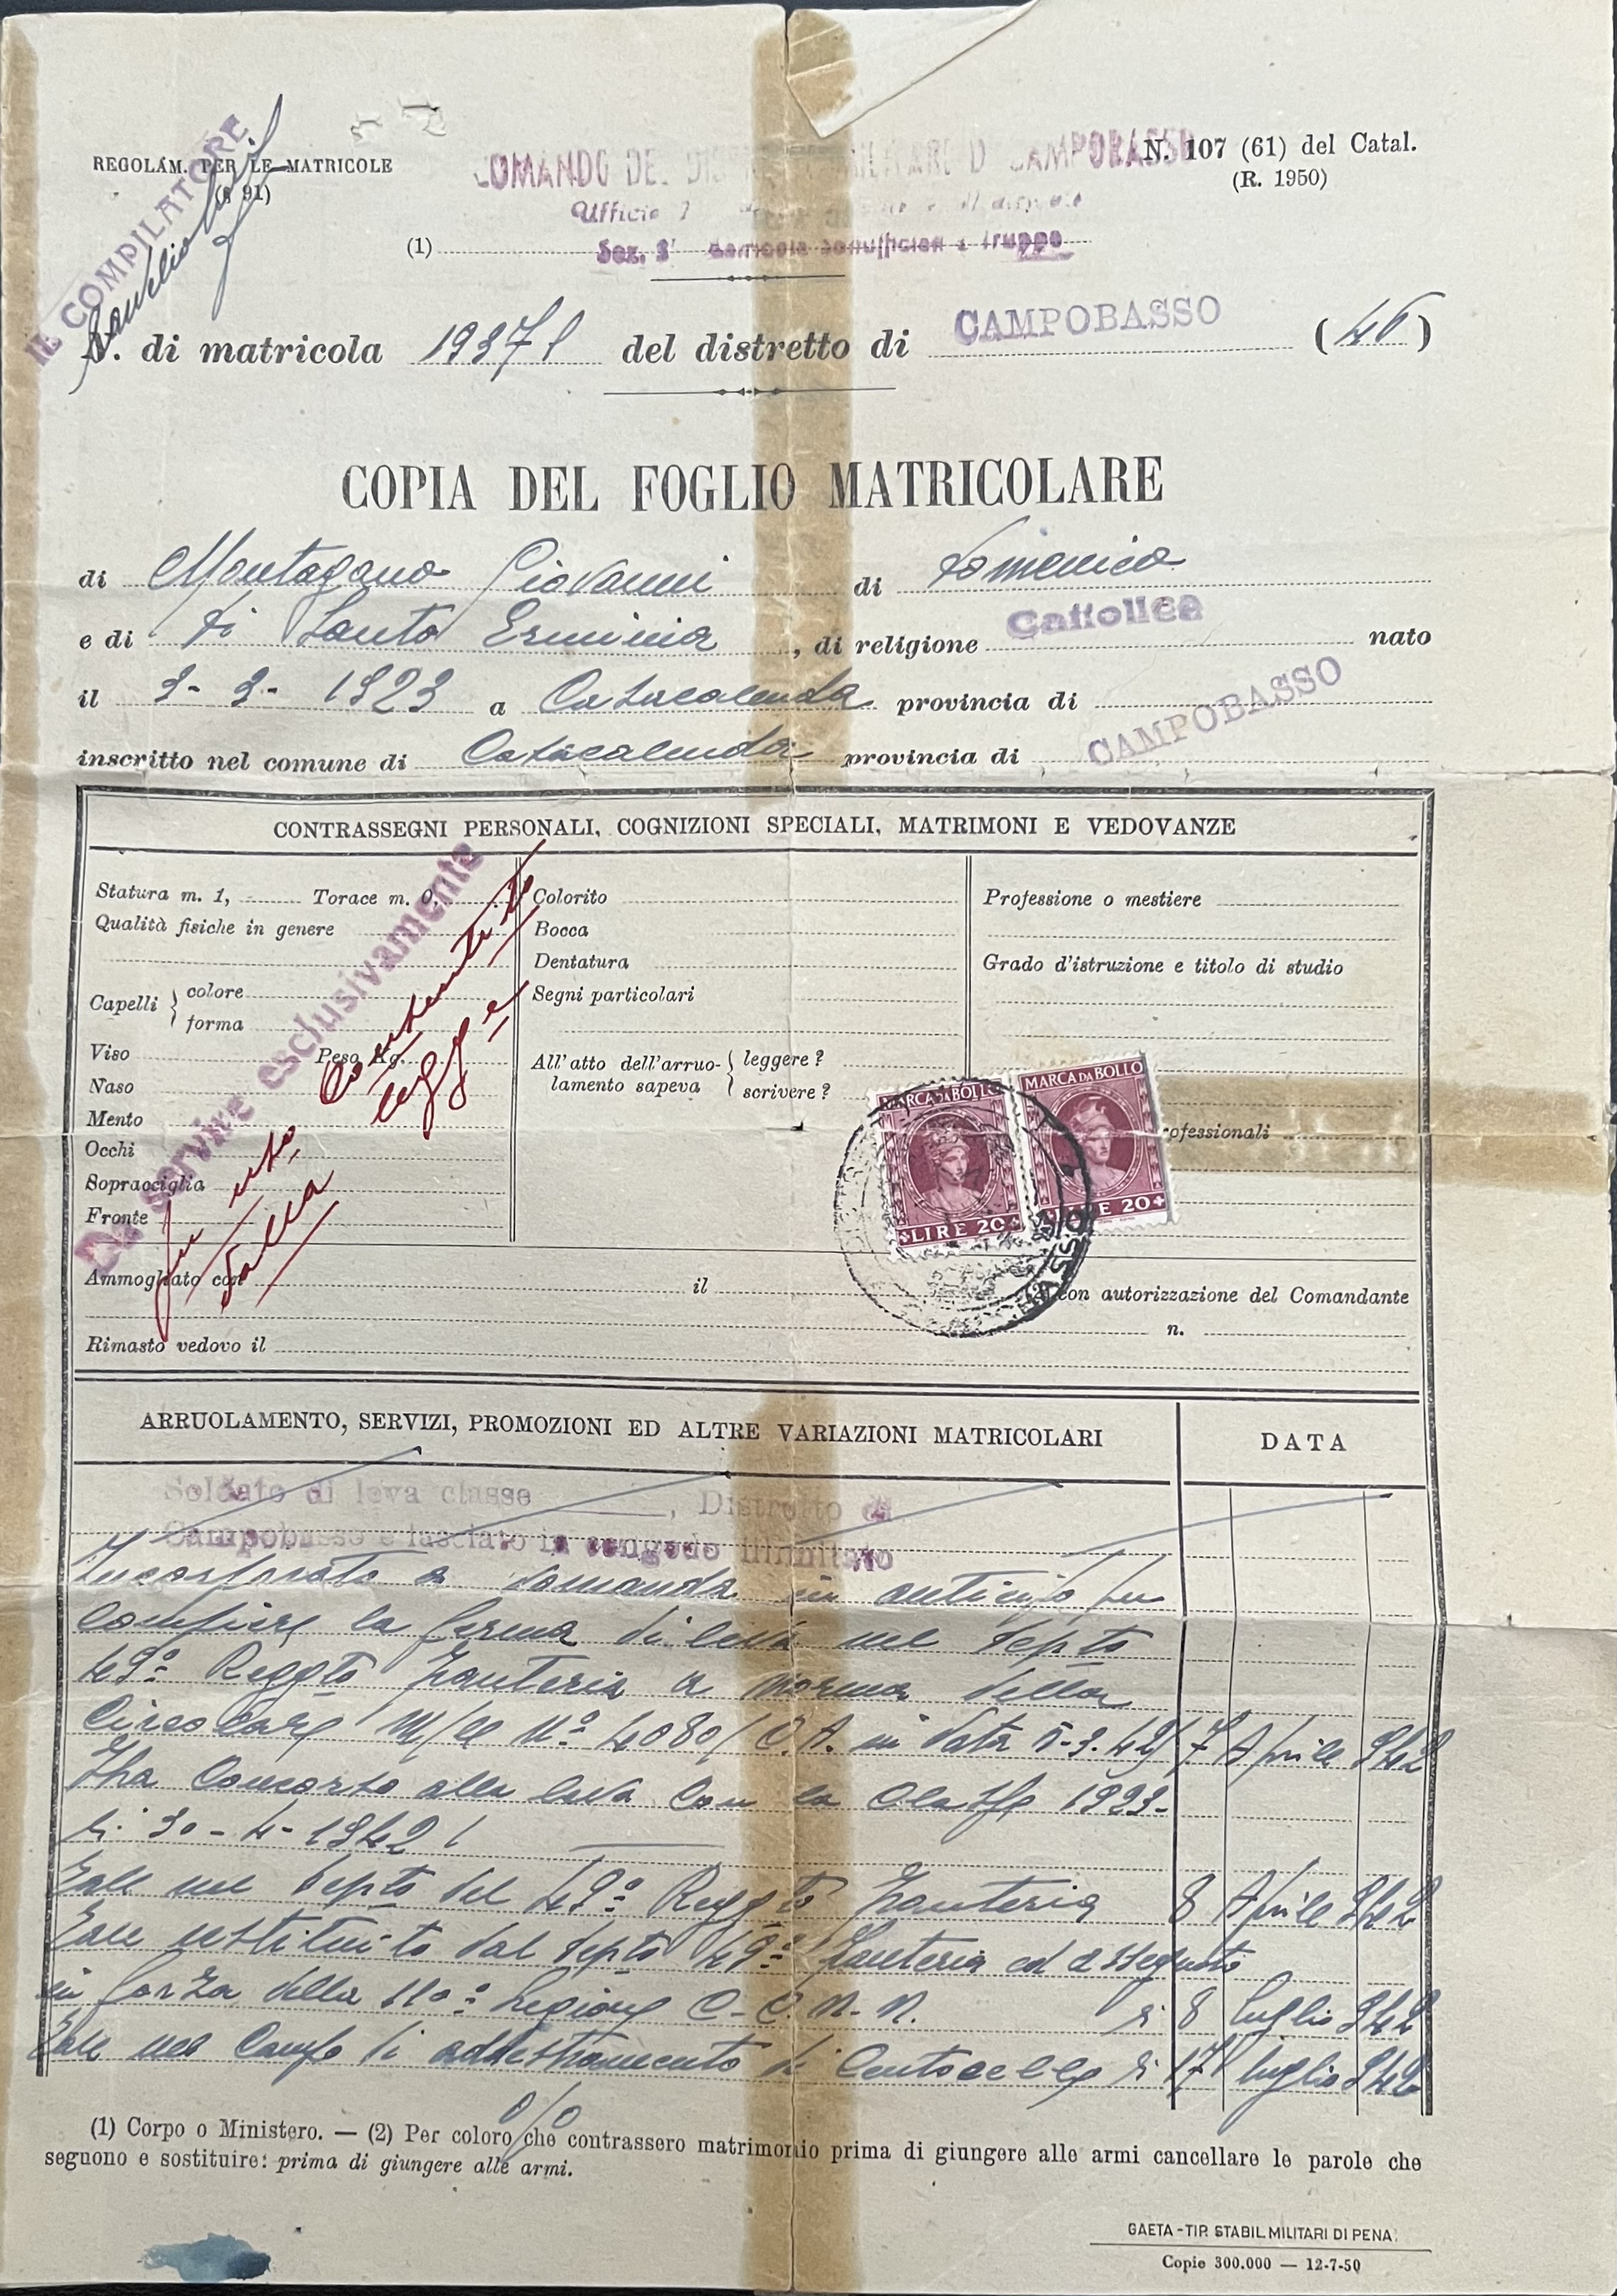 IL COMPILATORE
REGOLAM. PER LE MATRICOLE
(§ 91)
N. 107 (61) del Catal.
(R. 1950)
COMANDO DEL DISTRETTO MILITARE DI CAMPOBASSO
Ufficio
(1) Sez. 3ª Matricola Sottufficiali e Truppa
N. di matricola 19371 del distretto di CAMPOBASSO (46)
COPIA DEL FOGLIO MATRICOLARE
di Montagano Giovanni di Domenico
e di Di Santo Erminia, di religione Cattolica nato
il 3-3-1923 a Casacalenda provincia di CAMPOBASSO
inscritto nel comune di Casacalenda provincia di
CONTRASSEGNI PERSONALI, COGNIZIONI SPECIALI, MATRIMONI E VEDOVANZE
Statura m. 1, Torace m. 0,
Qualità fisiche in genere
Capelli colore
forma
Viso Peso Kg.
Naso
Mento
Occhi
Sopracciglia
Fronte
Da servire esclusivamente
consentito
legge
Colorito
Bocca
Dentatura
Segni particolari
All'atto dell'arruolamento sapeva leggere?
scrivere?
Professione o mestiere
Grado d'istruzione e titolo di studio
professionali
MARCA DA BOLLO
LIRE 20
MARCA DA BOLLO
LIRE 20
Ammogliato con il con autorizzazione del Comandante
n.
Rimasto vedovo il
ARRUOLAMENTO, SERVIZI, PROMOZIONI ED ALTRE VARIAZIONI MATRICOLARI
DATA
Soldato di leva classe , Distretto di
Campobasso e lasciato in congedo illimitato
Incorporato a domanda in anticipo per
compiere la ferma di leva nel Depto
49º Reggto Fanteria a norma della
Circolare M/le Nº 4080/C.A. in data 5-3-42 7 Aprile 942
Ha concorso alla leva con la classe 1923-
li 30-4-1942
Tale nel Depto del 49º Reggto Fanteria 8 Aprile 942
Tale restituito dal Depto 49º Fanteria ed assegnato
in forza della 110ª Legione C.C.N.N. li 8 luglio 942
Tale nel Campo di addestramento di Centocelle li 17 luglio 942
o/o
(1) Corpo o Ministero. — (2) Per coloro che contrassero matrimonio prima di giungere alle armi cancellare le parole che
seguono e sostituire: prima di giungere alle armi.
GAETA - TIP. STABIL. MILITARI DI PENA.
Copie 300.000 — 12-7-50